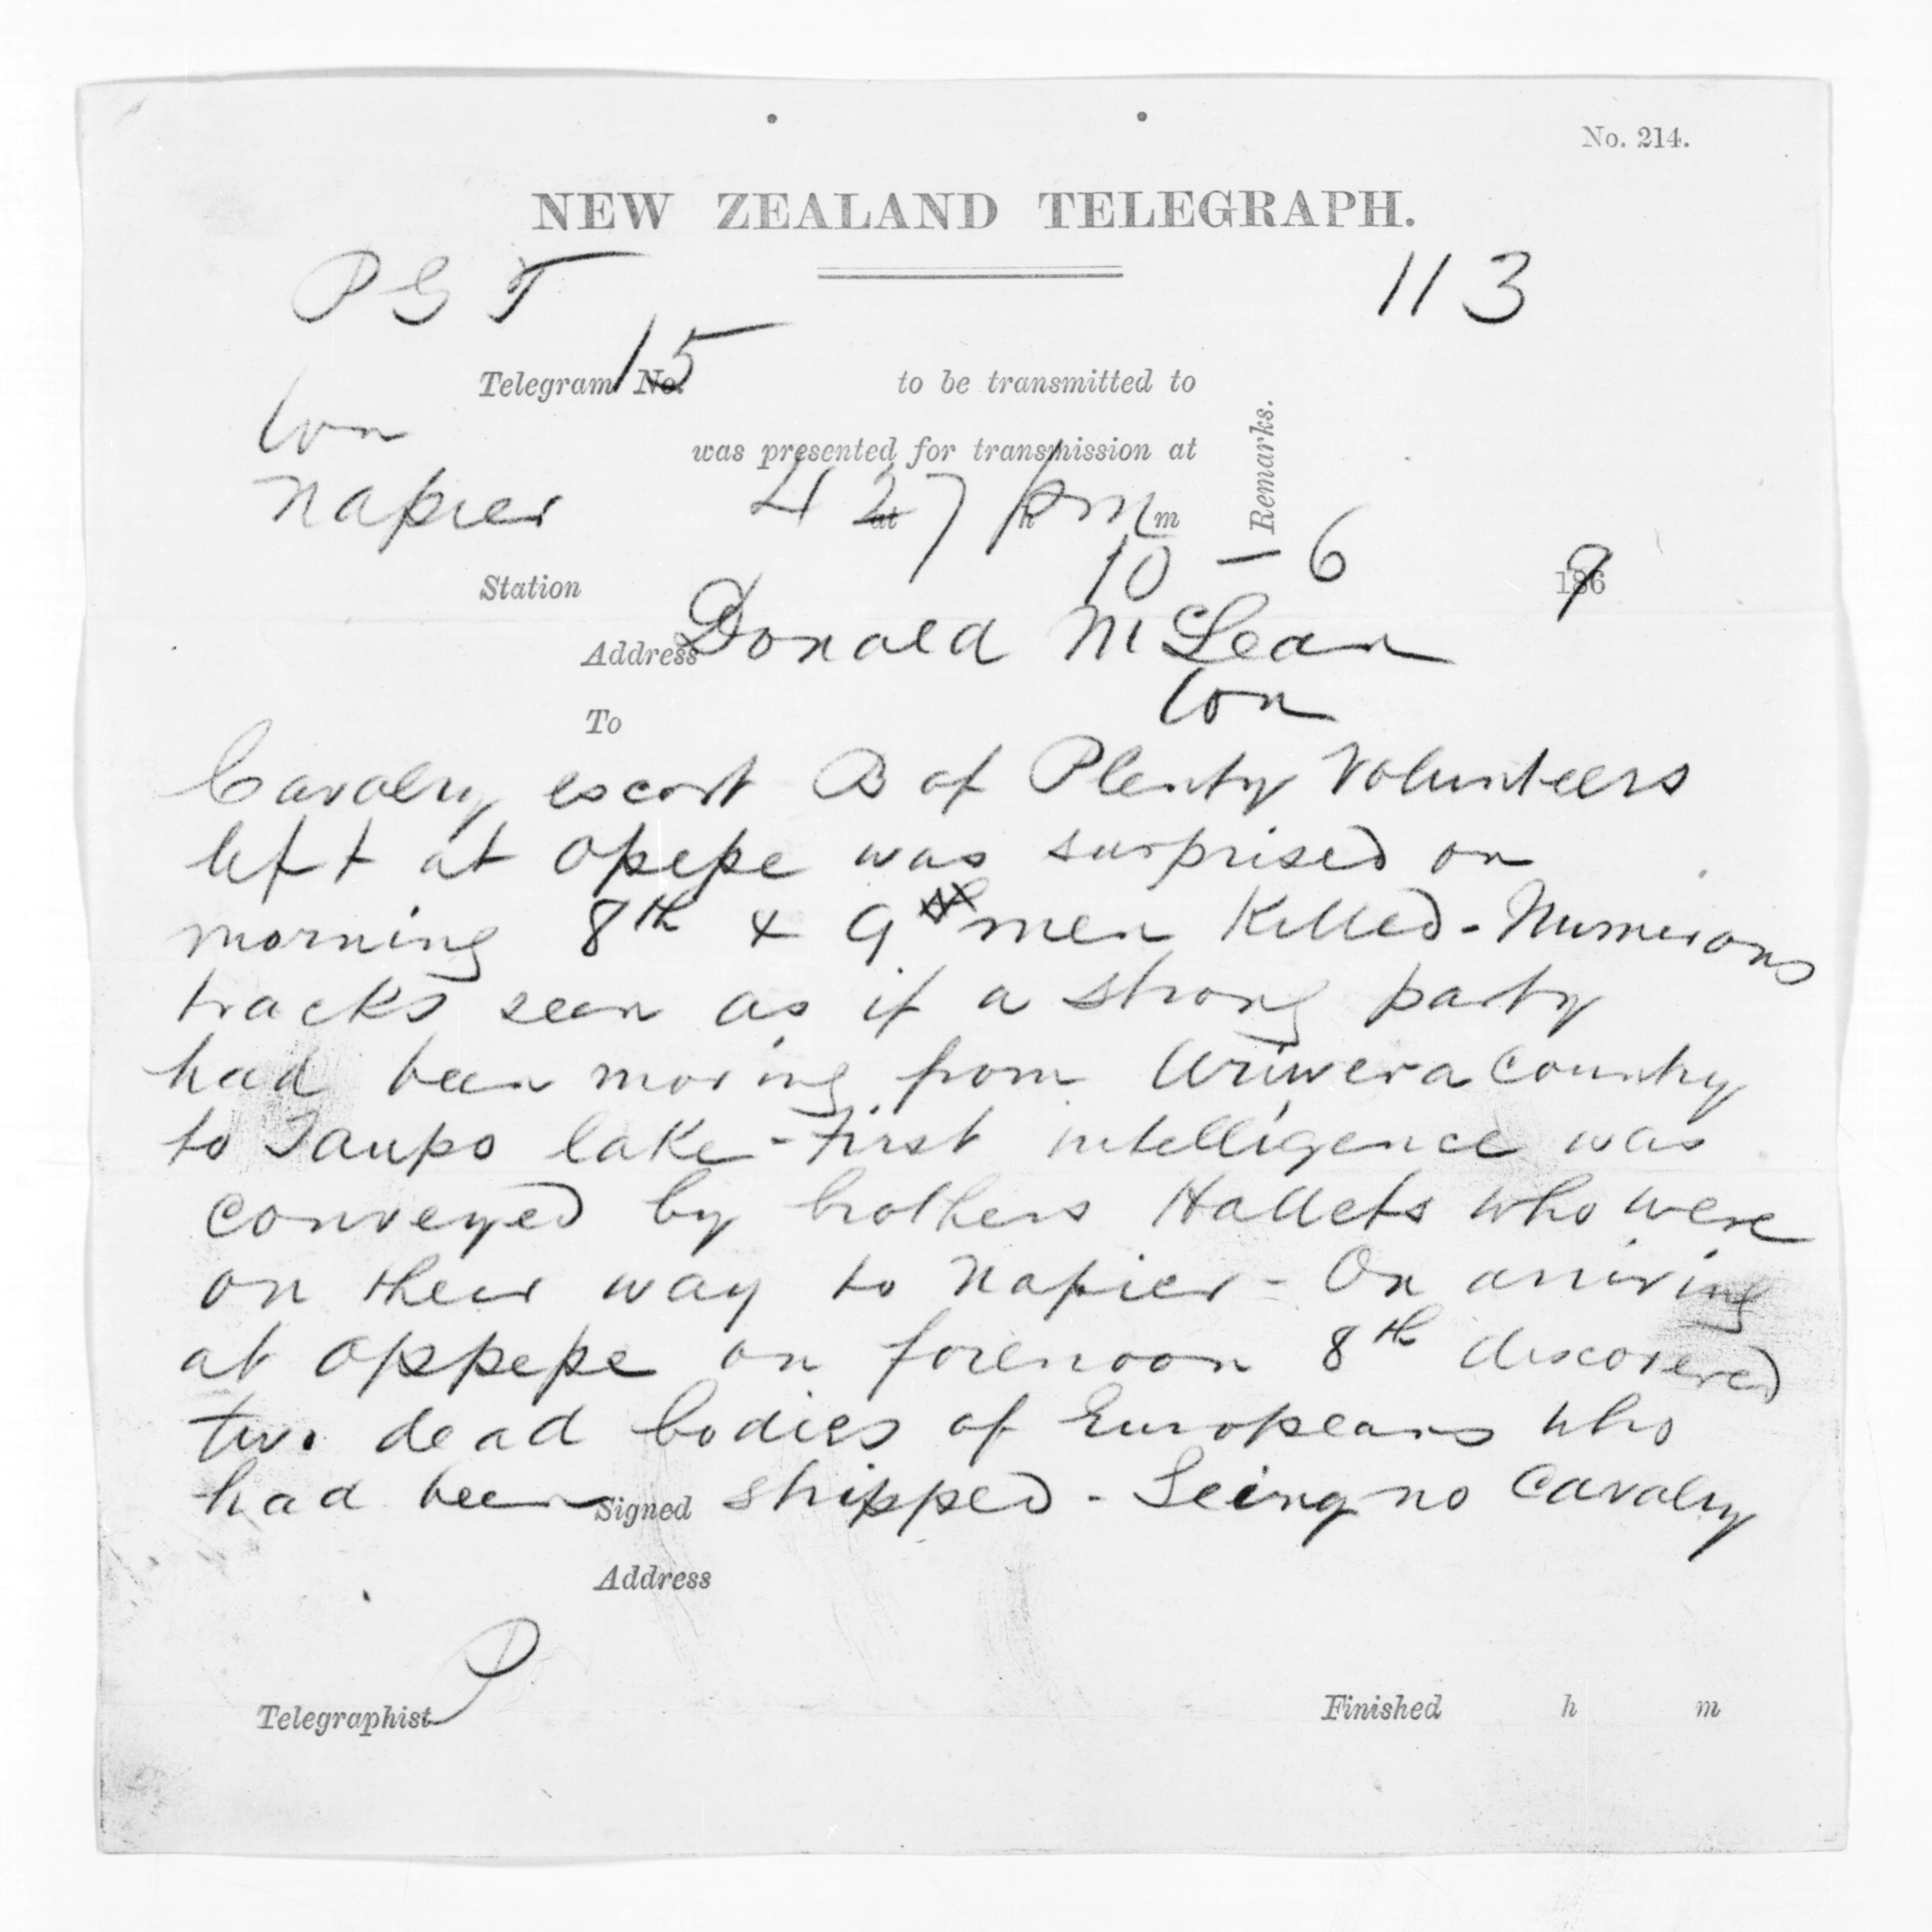 No. 214.
NEW ZEALAND TELEGRAPH.
P G T
113
Telegram No. 15 to be transmitted to
Won
was presented for transmission at
Remarks.
Napier 4 27 pm
at h m
10 - 6
Station 186 9
Address Donald McLean
Won
To
Cavalry escort B of Plenty Volunteers
left at Opepe was surprised on
morning 8th & 9 men Killed - Numerous
tracks seen as if a strong party
had been moving from Uriwera Country
to Taupo lake - First intelligence was
conveyed by brothers Hallets who were
on their way to Napier - On arriving
at Oppepe on forenoon 8th discovered
two dead bodies of Europeans who
had been stripped - Seeing no Cavalry
Signed
Address
Telegraphist
Finished h m